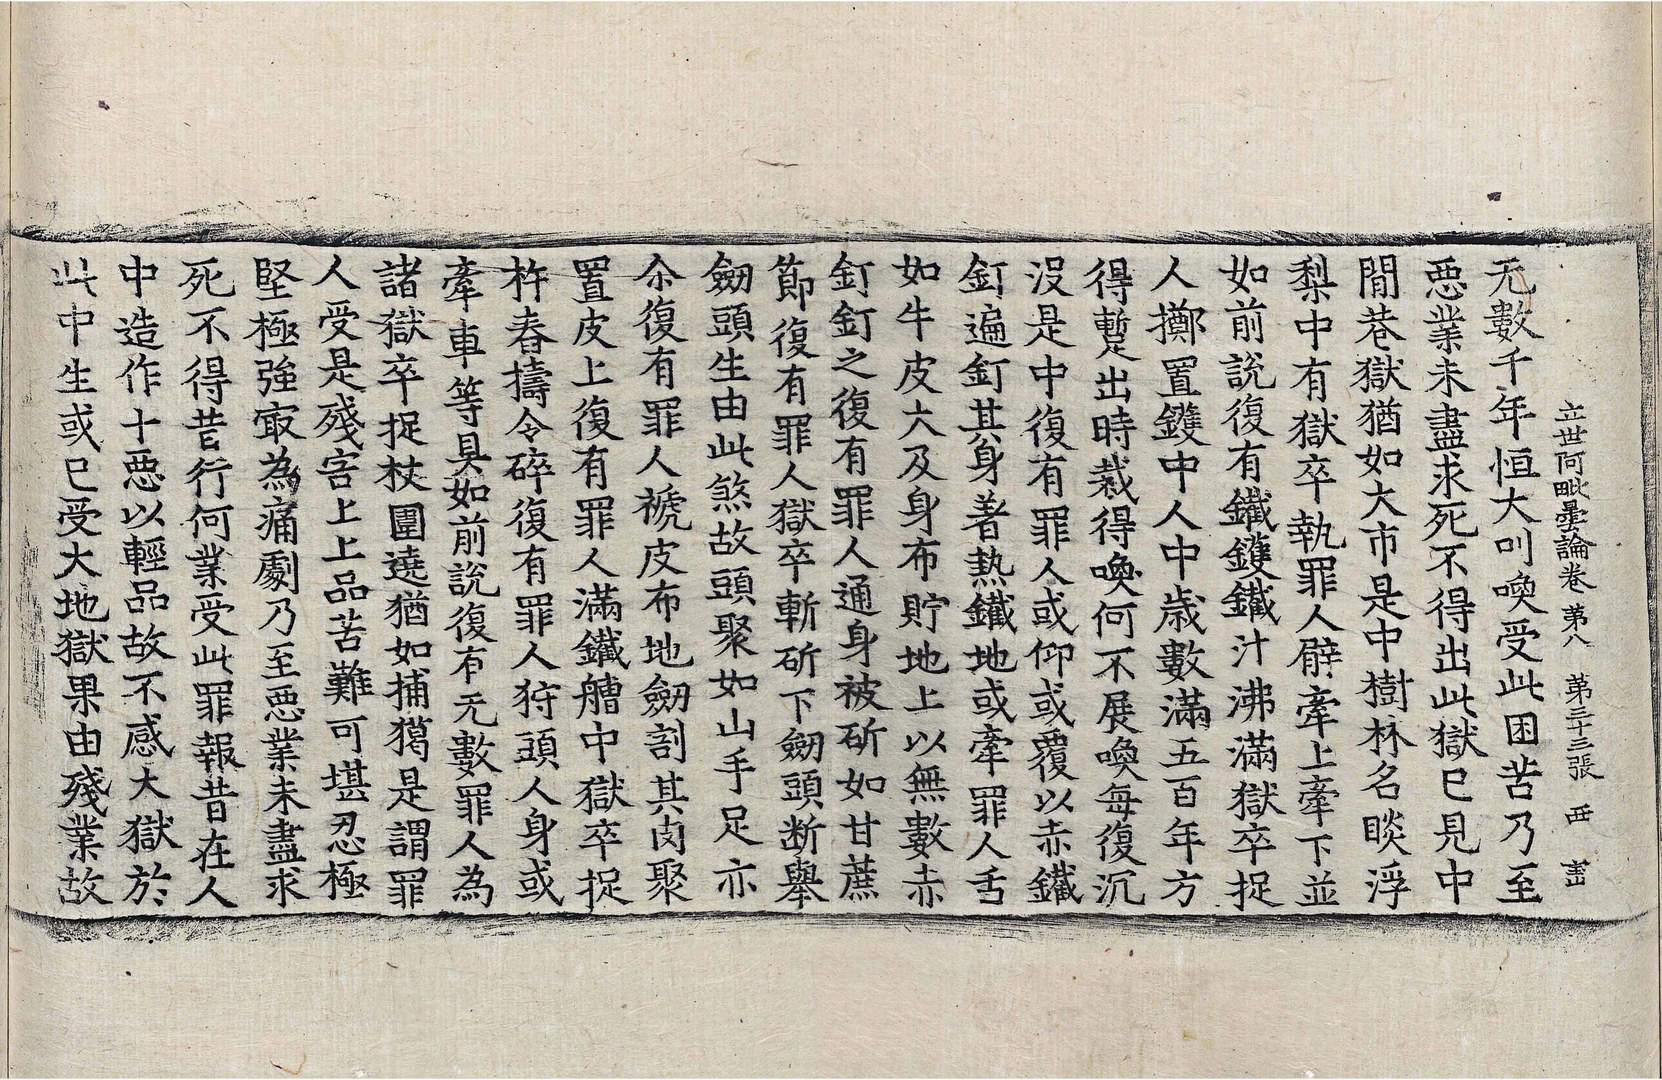 立世阿毗曇論卷第八 第三十三張 西
无數千年恒大叫喚受此困苦乃至
惡業未盡求死不得出此獄已見中
閒巷獄猶如大市是中樹林名睒浮
梨中有獄卒執罪人臂牽上牽下並
如前說復有鐵鑊鐵汁沸滿獄卒捉
人擲置鑊中人中歲數滿五百年方
得蹔出時裁得喚何不展喚每復沉
沒是中復有罪人或仰或覆以赤鐵
釘遍釘其身著熱鐵地或牽罪人舌
如牛皮大及身布貯地上以無數赤
釘釘之復有罪人通身被斫如甘蔗
節復有罪人獄卒斬斫下劒頭断舉
劒頭生由此煞故頭聚如山手足亦
尒復有罪人褫皮布地劒割其肉聚
置皮上復有罪人滿鐵艚中獄卒捉
杵舂擣令碎復有罪人狩頭人身或
牽車等具如前說復有无數罪人為
諸獄卒捉杖圍遶猶如捕獦是謂罪
人受是殘害上上品苦難可堪忍極
堅極強冣為痛劇乃至惡業未盡求
死不得昔行何業受此罪報昔在人
中造作十惡以輕品故不感大獄於
此中生或已受大地獄果由殘業故